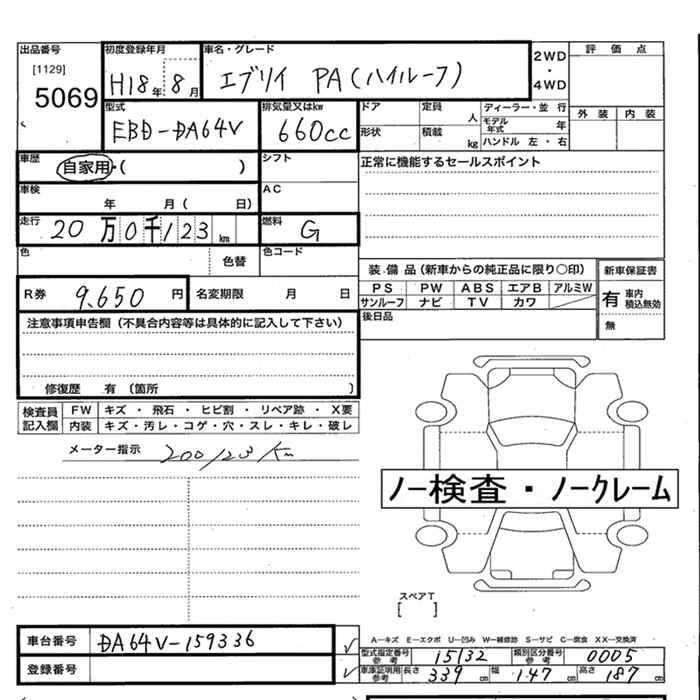 出品番号 初度登録年月 車名・グレード
[1129] 5069 H18年 8月 エブリイ PA(ハイルーフ)
2WD・4WD
評価点
外装 内装
型式 排気量又はkw
EBD-DA64V 660cc
ドア 定員 人 ディーラー・並行
モデル年式 年
形状 積載 kg ハンドル 左・右
車歴 自家用・( )
シフト
正常に機能するセールスポイント
車検 年 月( 日)
AC
走行 20万0千123km
燃料 G
色 色替 色コード
装備品(新車からの純正品に限り〇印) 新車保証書
PS PW ABS エアB アルミW
サンルーフ ナビ TV カワ
有 車内積込無効
無
R券 9,650円 名変期限 月 日
後日品
注意事項申告欄(不具合内容等は具体的に記入して下さい)
修復歴 有〔箇所 〕
検査員記入欄 FW キズ・飛石・ヒビ割・リペア跡・X要
内装 キズ・汚レ・コゲ・穴・スレ・キレ・破レ
メーター指示 200123Km
ノー検査・ノークレーム
スペアT
[ ]
車台番号 DA64V-159336
登録番号
A―キズ E―エクボ U―凹み W―補修跡 S―サビ C―腐食 XX―交換済
型式指定番号 参考 15132 類別区分番号 参考 0005
車庫証明用 参考 長さ 339cm 幅 147cm 高さ 187cm